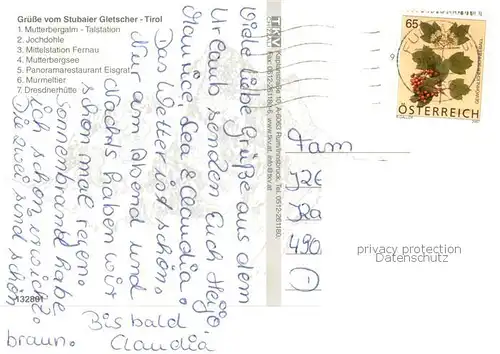 Grüße vom Stubaier Gletscher - Tirol
1. Mutterbergalm - Talstation
2. Jochdohle
3. Mittelstation Fernau
4. Mutterbergsee
5. Panoramarestaurant Eisgrat
6. Murmeltier
7. Dresdnerhütte
132801
Viele liebe Grüße aus dem
Urlaub senden Euch Heijo,
Maurice, Lea & Claudia.
Das Wetter ist schön.
Nur am Abend und
Nachts haben wir
schon mal regen.
Sonnenbrand habe
ich schon
Die zwei sind schön
braun.
Bis bald
Claudia
TKV
A-6063 Rum/Innsbruck, Tel. 0512-261180,
Fax: 0512-261180-6, www.tkv.at, info@tkv.at
65
ÖSTERREICH
Fam
490
D
privacy protection
Datenschutz